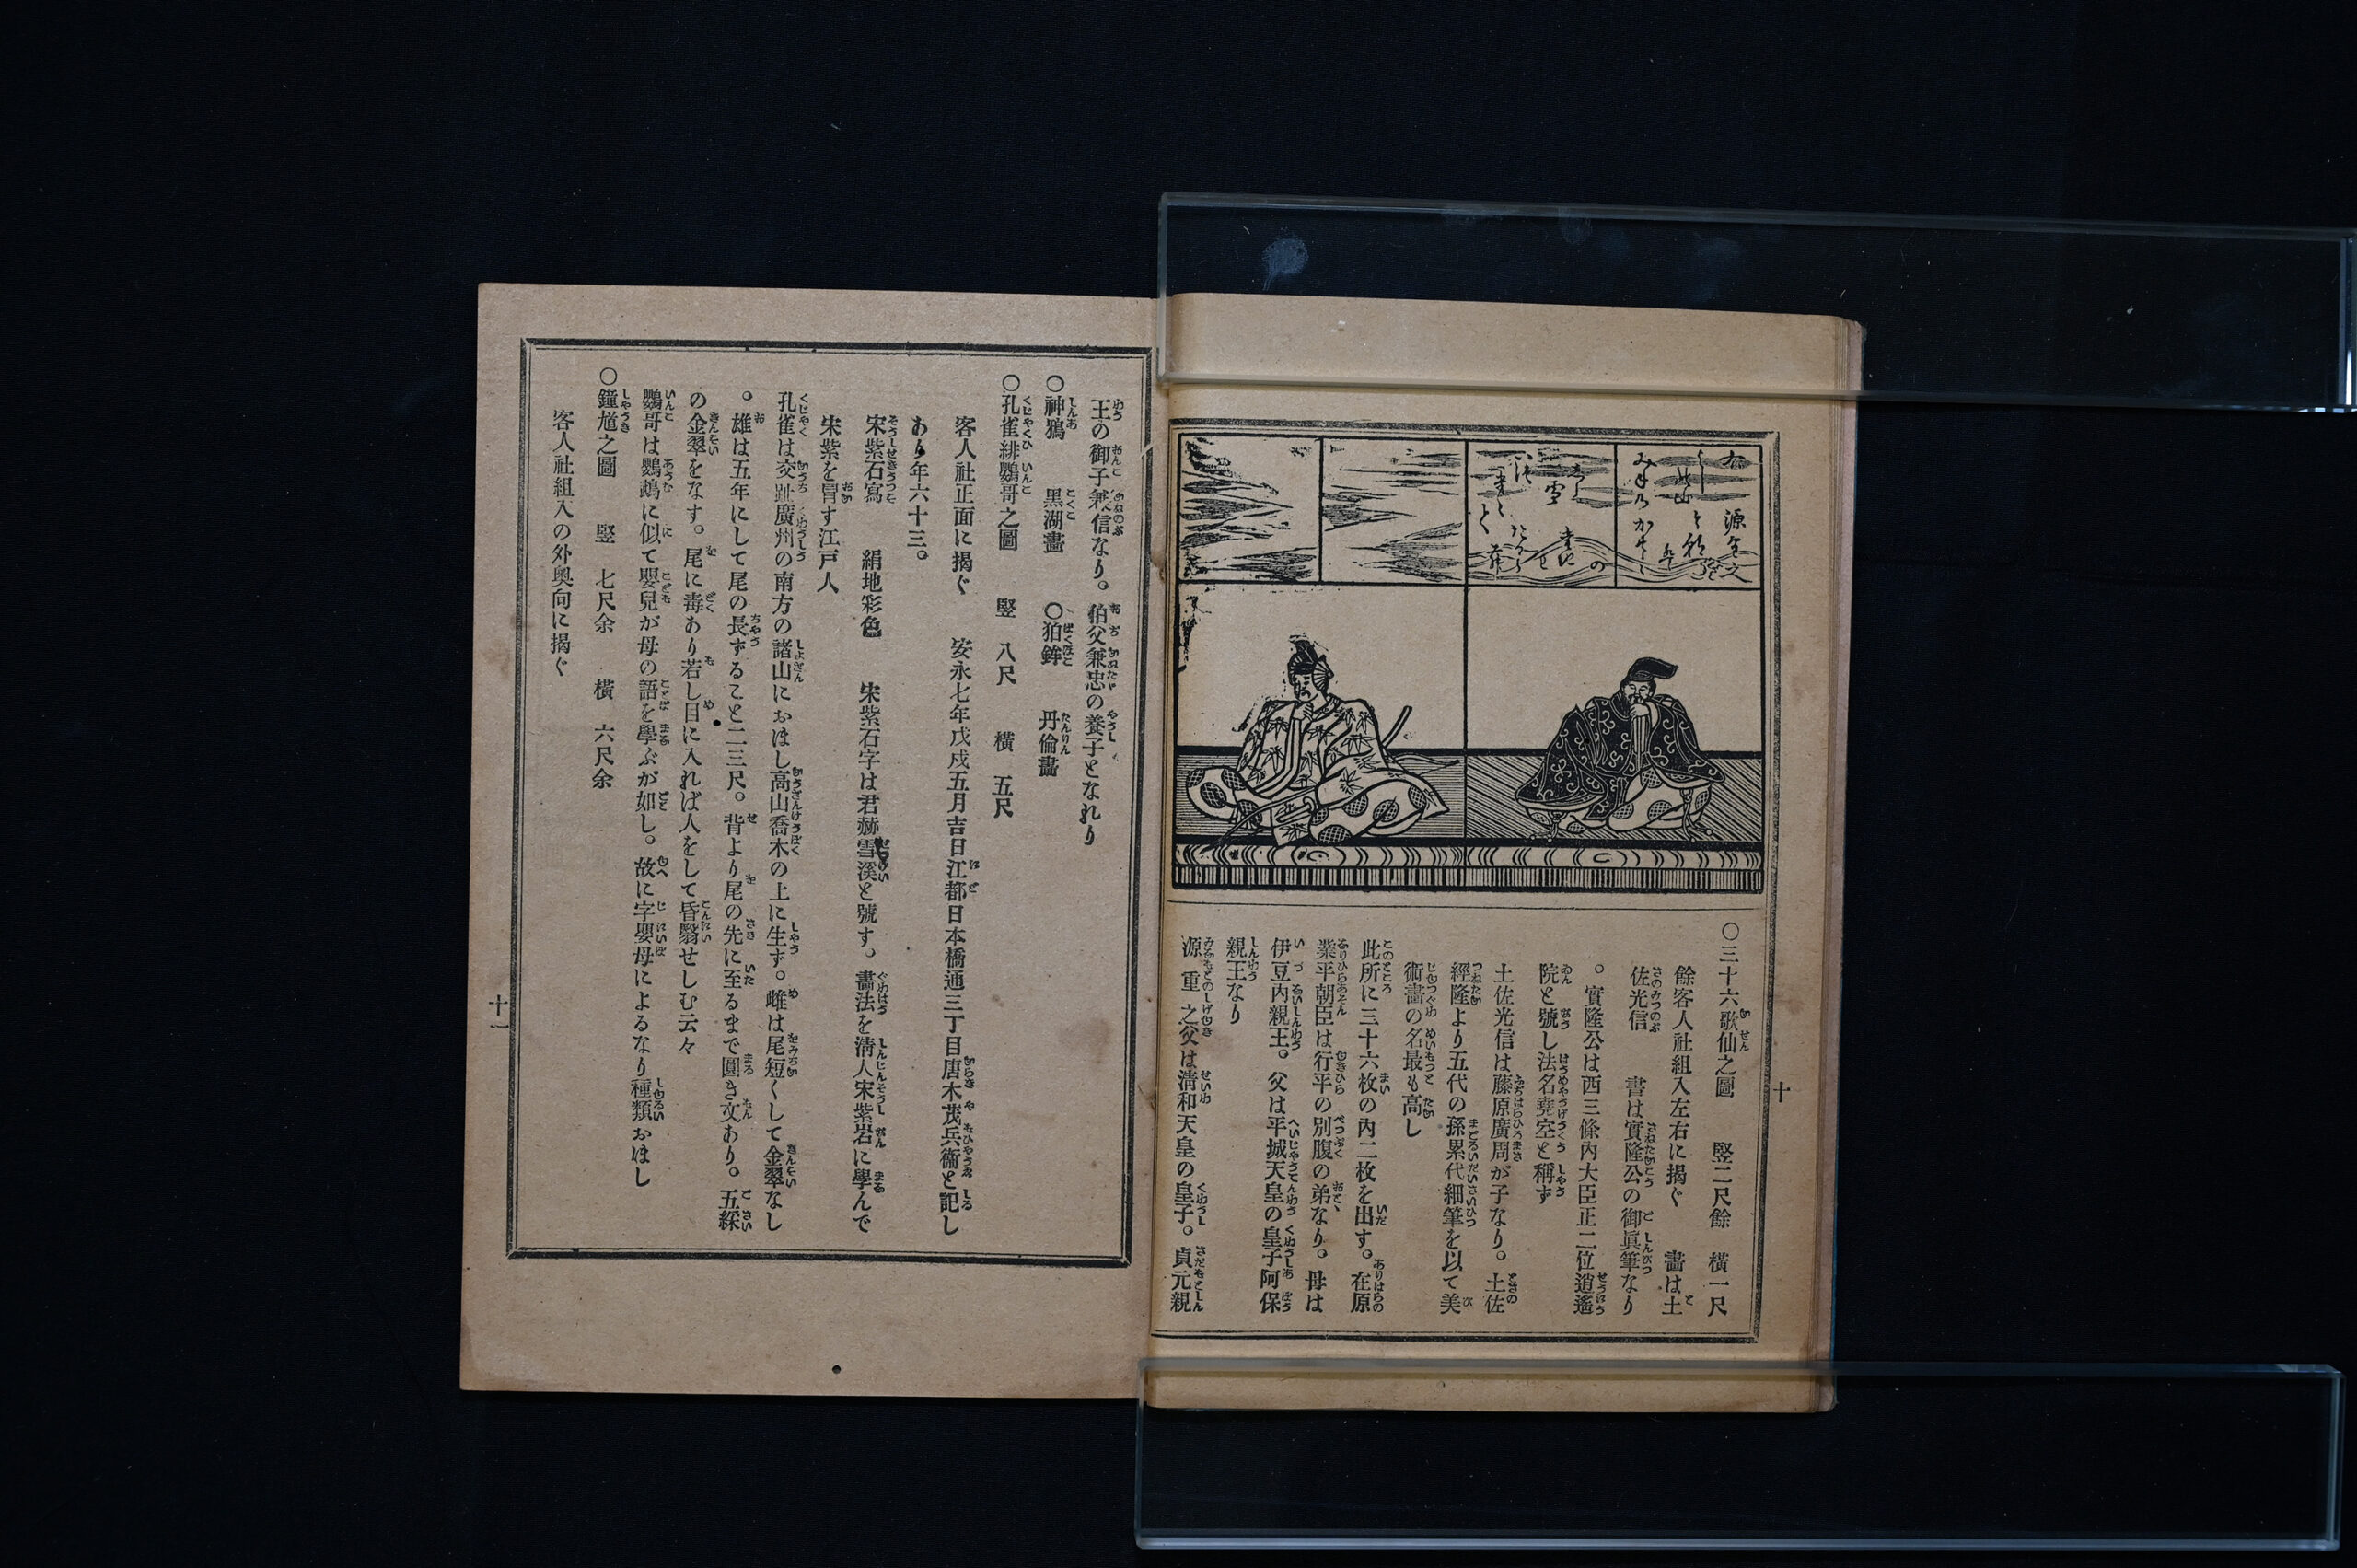 十
源重之
雪
〇三十六歌仙之圖 竪二尺餘 横一尺
餘客人社組入左右に揭ぐ 畵は土
佐光信 書は實隆公の御眞筆なり
。實隆公は西三條內大臣正二位逍遙
院と號し法名堯空と稱ず
土佐光信は藤原廣周が子なり。土佐
經隆より五代の孫累代細筆を以て美
術畵の名最も高し
此所に三十六枚の內二枚を出す。在原
業平朝臣は行平の別腹の弟なり。母は
伊豆內親王。父は平城天皇の皇子阿保
親王なり
源重之父は淸和天皇の皇子。貞元親
王の御子兼信なり。伯父兼忠の養子となれり
〇神鴉 黑湖畵 〇狛鉾 丹倫畵
〇孔雀緋鸚哥之圖 竪 八尺 横 五尺
客人社正面に揭ぐ 安永七年戊戍五月吉日江都日本橋通三丁目唐木茂兵衞と記し
あり年六十三。
宋紫石寫 絹地彩色 宋紫石字は君赫雪溪と號す。畵法を淸人宋紫岩に學んで
宋紫を冒す江戸人
孔雀は交趾廣州の南方の諸山におほし高山喬木の上に生ず。雌は尾短くして金翠なし
。雄は五年にして尾の長ずること二三尺。背より尾の先に至るまで圓き文あり。五綵
の金翠をなす。尾に毒あり若し目に入れば人をして昏翳せしむ云々
鸚哥は鸚鵡に似て嬰兒が母の語を學ぶが如し。故に字嬰母によるなり種類おほし
〇鐘馗之圖 竪 七尺余 横 六尺余
客人社組入の外奧向に揭ぐ
十一